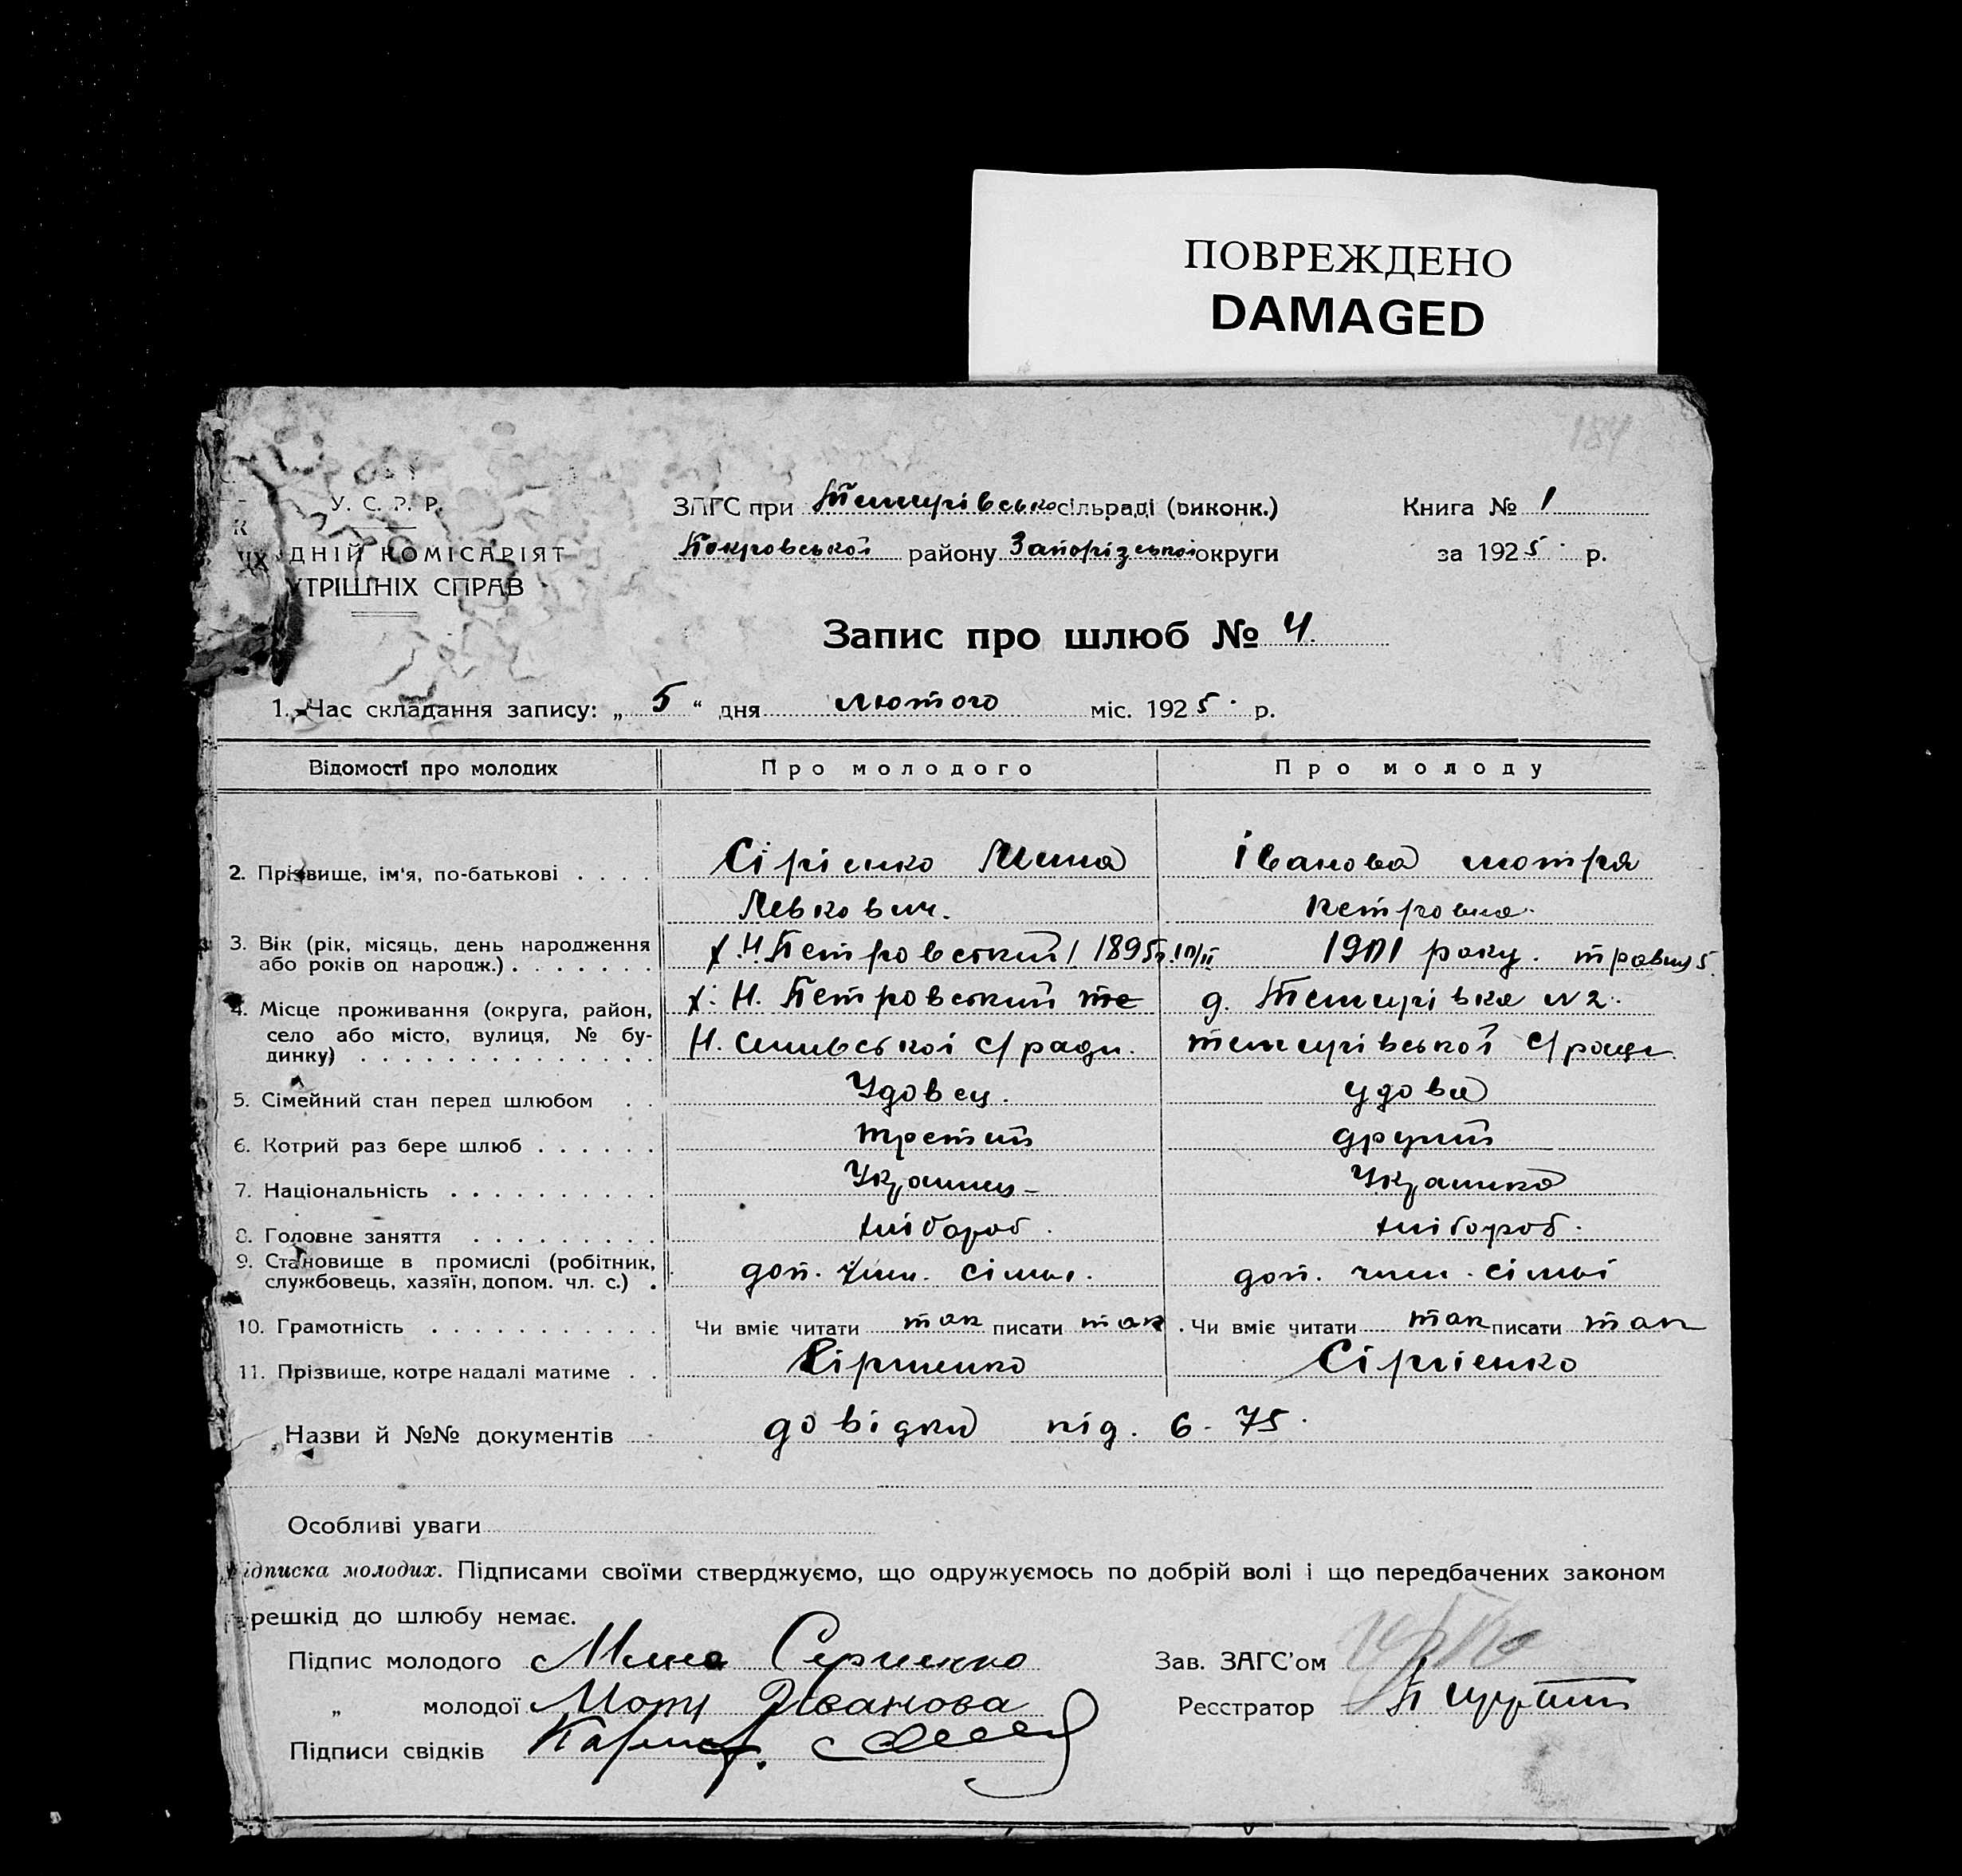 ПОВРЕЖДЕНО
DAMAGED
184
У. С. Р. Р.
ДНІЙ КОМІСАРІЯТ
ТРІШНІХ СПРАВ
ЗАГС при Темирівсько сільраді (виконк.)
Покровської району Запорізської округи
Книга № 1
за 1925 р.
Запис про шлюб № 4.
1. Час складання запису: „ 5 “ дня лютого міс. 1925 р.
Відомості про молодих Про молодого Про молоду
2. Прізвище, ім'я, по-батькові . . . . Сірієнко Мина Іванова мотря
Левкович. петровна.
3. Вік (рік, місяць, день народження або років од народж.) . . . . . . . х. Н. Петровський 1895 р. 10/II 1901 року. травня 5.
4. Місце проживання (округа, район, село або місто, вулиця, № будинку) . . . . . . . . . . . . . . х. Н. Петровський те д. Темирівка №2.
Н. с/ради. темирівської с/ради
5. Сімейний стан перед шлюбом . . Удовец. удова
6. Котрий раз бере шлюб . . . . . . третий другий
7. Національність . . . . . . . . . . Украинец- Украинка
8. Головне заняття . . . . . . . . . хлібороб. хлібороб.
9. Становище в промислі (робітник, службовець, хазяїн, допом. чл. с.) . доп. член. сімьі. доп. член. сімьі
10. Грамотність . . . . . . . . . . . Чи вміє читати так писати так . Чи вміє читати так писати так
11. Прізвище, котре надалі матиме . . Сіриенко Сірієнко
Назви й №№ документів довідки під. 6-75.
Особливі уваги
ідписка молодих. Підписами своїми стверджуємо, що одружуємось по добрій волі і що передбачених законом
решкід до шлюбу немає.
Підпис молодого Мина Сериенко Зав. ЗАГС'ом
„ молодої Мотя Иванова Реєстратор
Підписи свідків